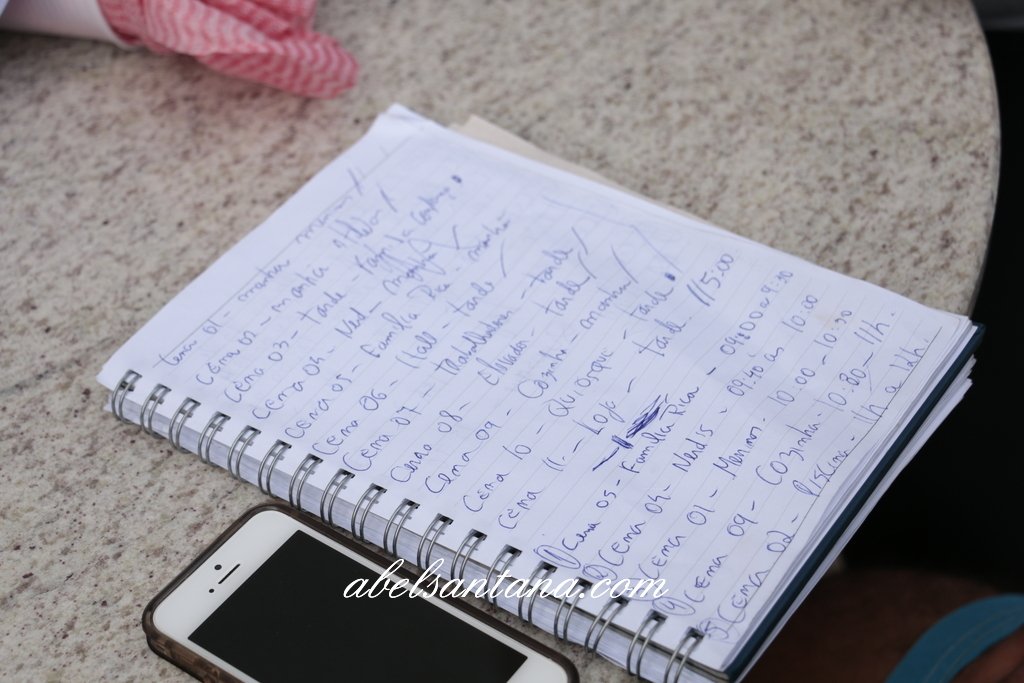 Cena 01 - manhã
Cena 02 - manhã
Cena 03 - tarde
Cena 04 - Nerd - manhã
Cena 05 - Família Rica - manhã
Cena 06 - Hall - tarde
Cena 07 - Trabalhadores - tarde
Cena 08 - Elevador - tarde
Cena 09 - Cozinha - manhã
Cena 10 - Quiosque - tarde
Cena 11 - Loja - tarde
15:00
1) Cena 05 - Família Rica - 09:00 a 9:30
2) Cena 04 - Nerds - 09:40 às 10:00
3) Cena 01 - 10:00 - 10:30
4) Cena 09 - Cozinha - 10:30 - 11h.
5) Cena 02 - Piscina - 11h a 12h.
abelsantana.com